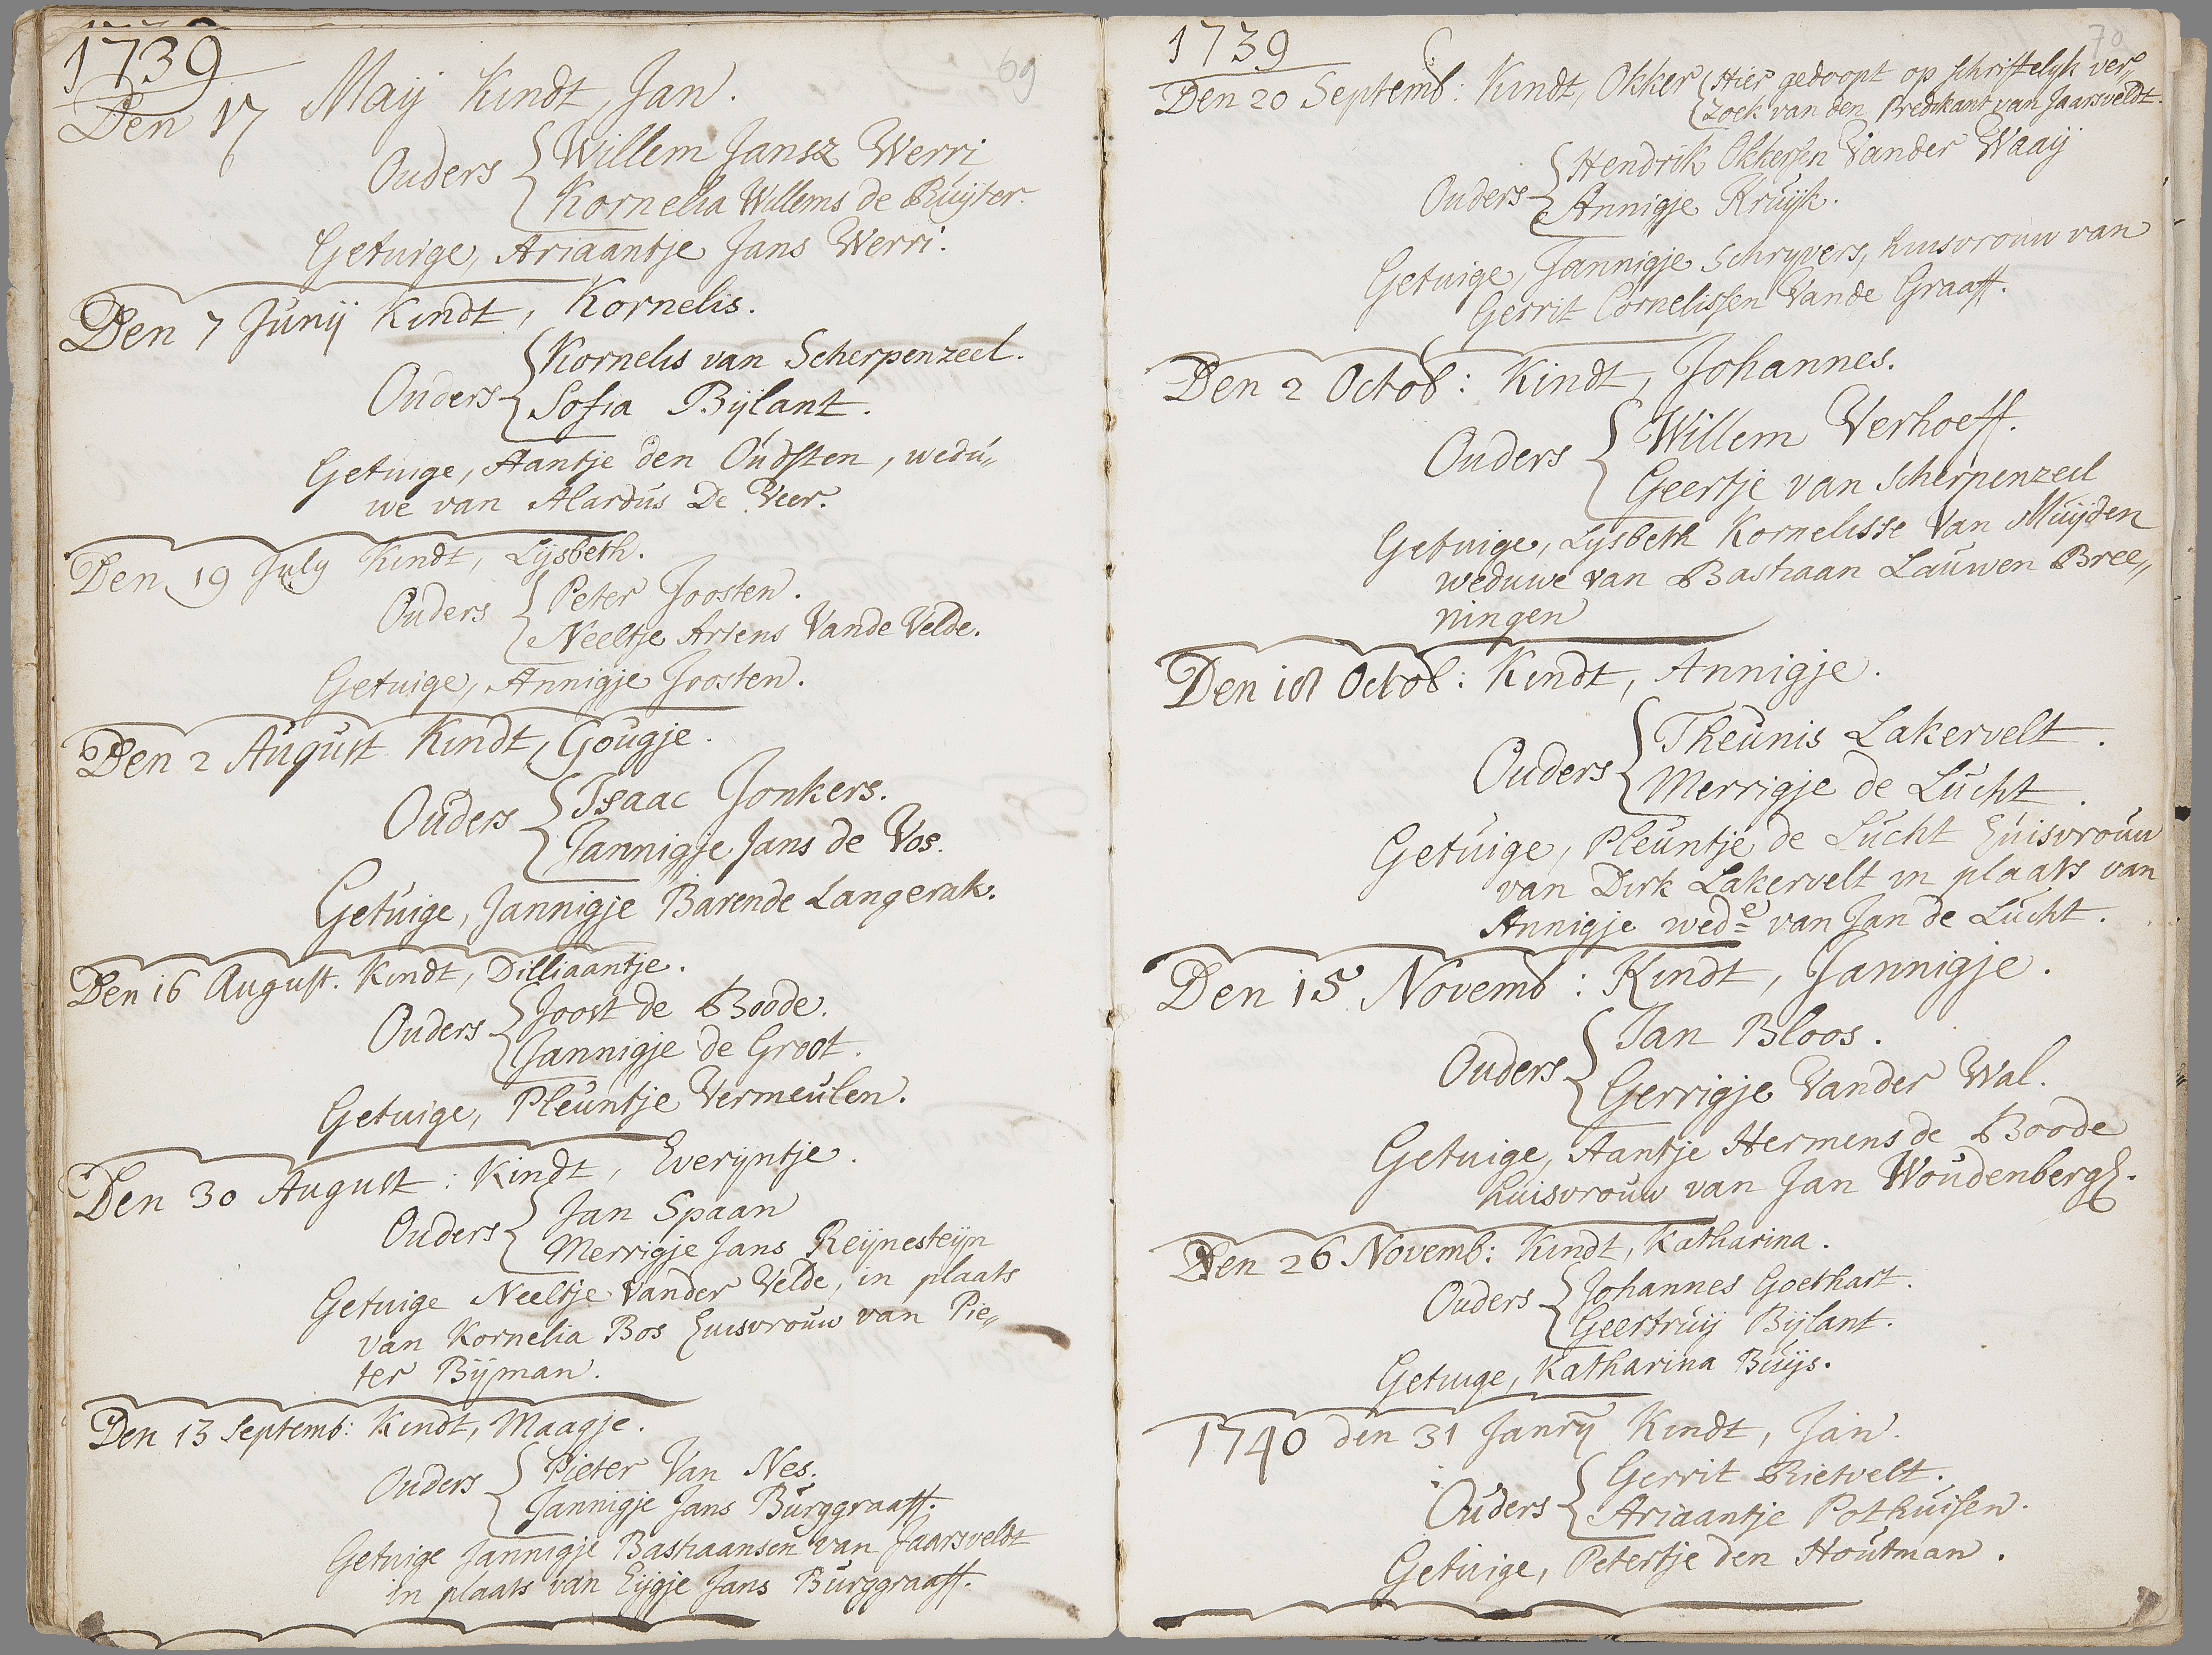 1739
69
Den 17 Maij Kindt, Jan.
Ouders { Willem Jansz Werri
Kornelia Willems de Ruijter.
Getuige, Ariaantje Jans Werri.
Den 7 Junij Kindt, Kornelis.
Ouders { Kornelis van Scherpenzeel.
Sofia Bijlant.
Getuige, Aantje den Oudsten, wedu„
we van Alardus De Veer.
Den 19 July Kindt, Lijsbeth.
Ouders { Peter Joosten.
Neeltje Ariens Vande Velde.
Getuige, Annigje Joosten.
Den 2 August Kindt, Gougje.
Ouders { Isaac Jonkers.
Jannigje Jans de Vos.
Getuige, Jannigje Barende Langerak.
Den 16 August. Kindt, Dilliaantje.
Ouders { Joost de Boode.
Jannigje de Groot.
Getuige, Pleuntje Vermeulen.
Den 30 August: Kindt, Everijntje.
Ouders { Jan Spaan
Merrigje Jans Reijnesteijn
Getuige Neeltje Vander Velde, in plaats
van Kornelia Bos huisvrouw van Pie„
ter Bijman.
Den 13 Septemb: Kindt, Maagje.
Ouders { Pieter Van Nes.
Jannigje Jans Burggraaff.
Getuige Jannigje Bastiaansen van Jaarsveldt
in plaats van Eijgje Jans Burggraaff.
1739
70
Den 20 Septemb: Kindt, Okker { Hier gedoopt op schriftelyk ver„
zoek van den Predikant van Jaarsveldt.
Ouders { Hendrik Okkersen Vander Waaij
Annigje Kruijk.
Getuige, Jannigje Schryvers, huisvrouw van
Gerrit Cornelissen Vande Graaff.
Den 2 Octob: Kindt, Johannes.
Ouders { Willem Verhoeff.
Geertje van Scherpenzeel
Getuige, Lysbeth Kornelisse Van Muijden
weduwe van Bastiaan Lauwen Bree„
ningen
Den 18 Octob: Kindt, Annigje.
Ouders { Theunis Lakervelt.
Merrigje de Lucht.
Getuige, Pleuntje de Lucht huisvrouw
van Dirk Lakervelt in plaats van
Annigje wede van Jan de Lucht.
Den 15 Novemb: Kindt, Jannigje.
Ouders { Jan Bloos.
Gerrigje Vander Wal.
Getuige, Aantje Hermens de Boode
huisvrouw van Jan Woudenbergh.
Den 26 Novemb: Kindt, Katharina.
Ouders { Johannes Goethart.
Geertruij Bijlant.
Getuige, Katharina Buijs.
1740 den 31 Janrij Kindt, Jan.
Ouders { Gerrit Rietvelt.
Ariaantje Pothuisen.
Getuige, Petertje den Houtman.